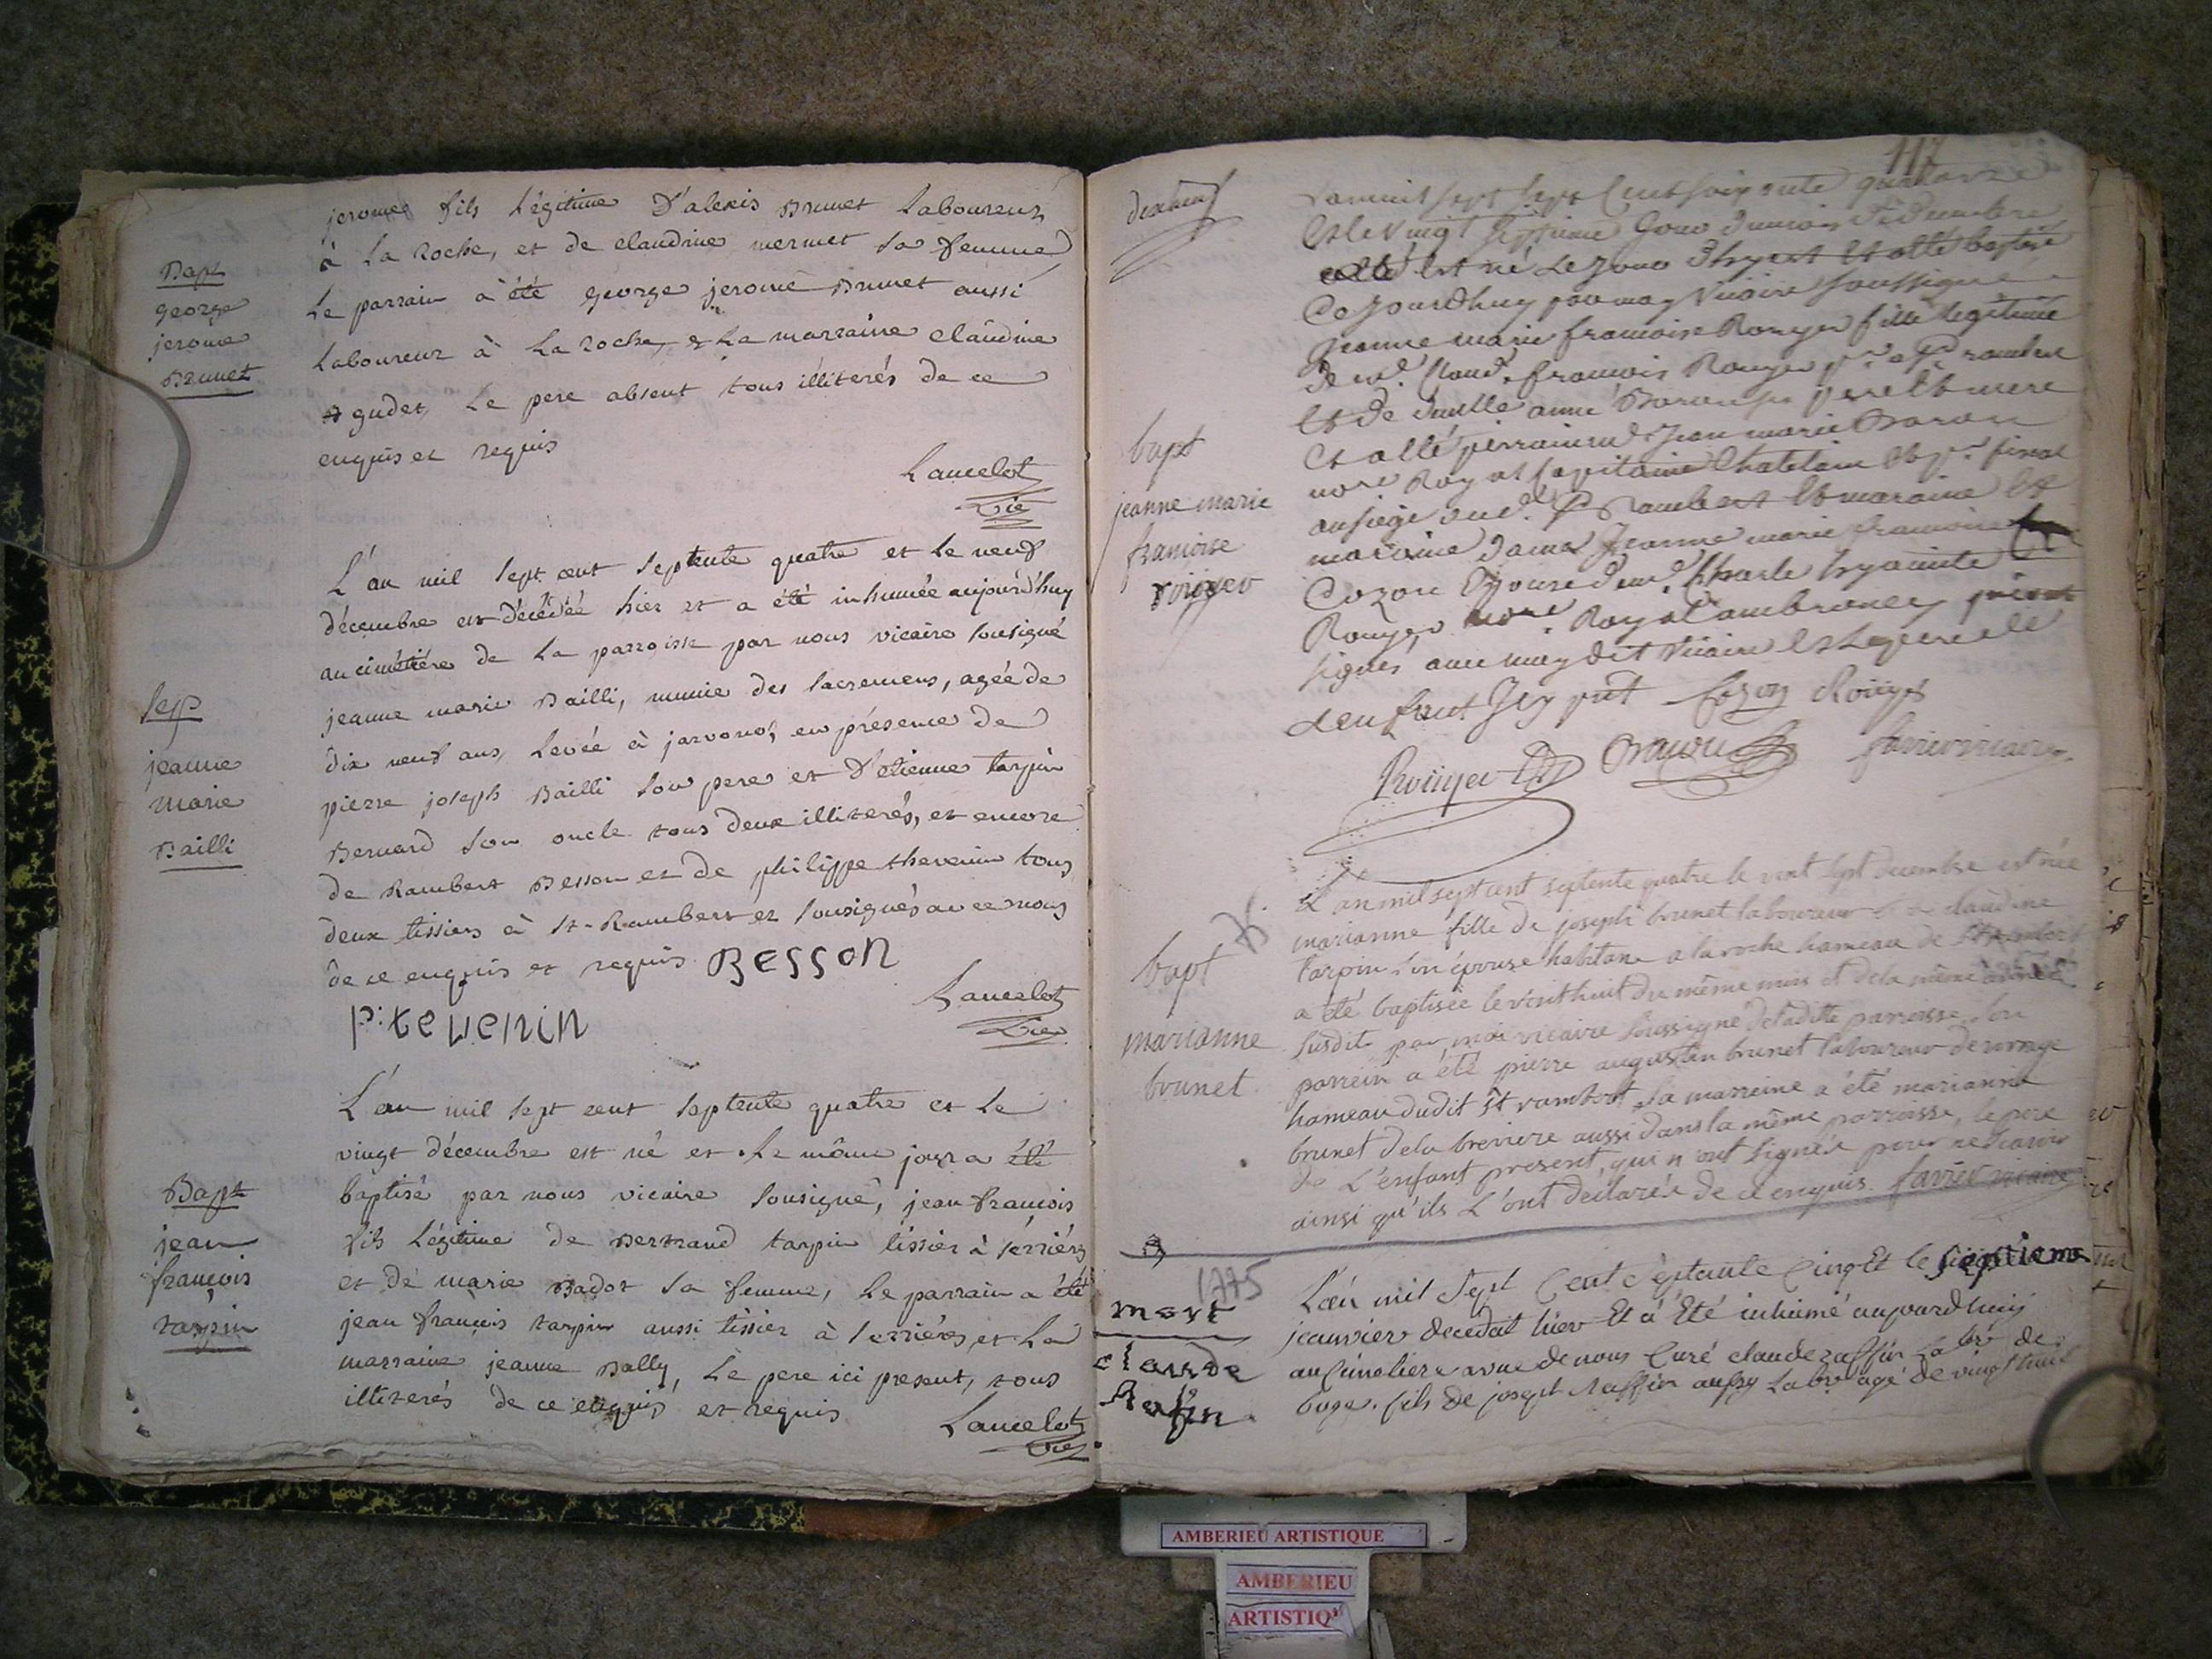 jerome fils légitime d'alexis Brunet laboureur
à la roche, et de claudine mermet sa femme
Bapt
george
jerome
Brunet
le parrain a été george jerome Brunet aussi
laboureur à la roche, & la marraine claudine
gudet, le pere absent tous illiterés de ce
enquis et requis
Lancelot
Vic
L'an mil sept cent septente quatre et le neuf
décembre est décédée hier et a été inhumée aujourd'huy
au cimétiére de la parroisse par nous vicaire sousigné
Sep
jeanne
marie
Bailli
jeanne marie Bailli, munie des sacremens, agée de
dix neuf ans, levée à javornos, en présence de
pierre joseph Bailli son pere et d'etienne tarpin
Bernard son oncle tous deux illiterés, et encore
de Rambert Besson et de philippe thevenin tous
deux tissiers à St-Rambert et sousignés avec nous
de ce enquis et requis Besson
P: tevenin
Lancelot
Vic
L'an mil sept cent septente quatre et le
vingt décembre est né et le même jour a été
Bapt
jean
françois
tarpin
baptisé par nous vicaire sousigné, jean françois
fils légitime de Bertrand tarpin tissier à serriéres
et de marie Badot sa femme, le parrain a été
jean françois tarpin aussi tissier à serriéres, et la
marraine jeanne Bally, le pere ici present, tous
illiterés de ce enquis et requis
Lancelot
Vic
117
L'an mil sept sept Cent soixante quatorze
Et le vingt septieme Jour du mois de decembre
est né le jour d'hyer et a été baptisé
Ce jourdhuy par moy Vicaire soussigné
bapt
jeanne marie
francoise
roüyer
Jeanne marie francoise Rouyer fille legitime
de françois Rouyer
Et de anne pere et mere
Et a été Jean marie
Royal Capitaine Chatelain
au siege Rambert Et maraine
Jeanne marie francoise
Cozon Epouse de Charle hyacinte
Rouyer Royal ambronay
signés avec moy dit Vicaire Et le pere de
l'enfant Icy pnt Cozon Roüyer
Roüyer
L'an mil sept cent septente quatre le vint sept decembre est née
bapt
marianne
brunet
marianne fille de joseph brunet laboureur & de claudine
tarpin son épouse habitans a la roche hameau de St rambert
a été baptisée le vint huit du même mois et de la même année
susdite par moi vicaire soussigné de ladite parroisse, son
parrein a été pierre augustin brunet laboureur
hameau dudit St rambert, la marreine a été marianne
brunet de la breviere aussi dans la même parroisse, le pere
de l'enfant present, qui n'ont signés pour ne sçavoir
ainsi qu'ils l'ont declarés de ce enquis. favier vicaire
1775
mort
claude
Rafin
L'an mil Sept Cent Septante Cinq Et le septieme
janvier decedat hier Et a Été inhumé aujourdhuiy
au Cimetiere a vue de nous Curé claude raffin labr de
buge. fils de josept Raffin aussy labr agé de vingt huit
AMBERIEU ARTISTIQUE
AMBERIEU
ARTISTIQ